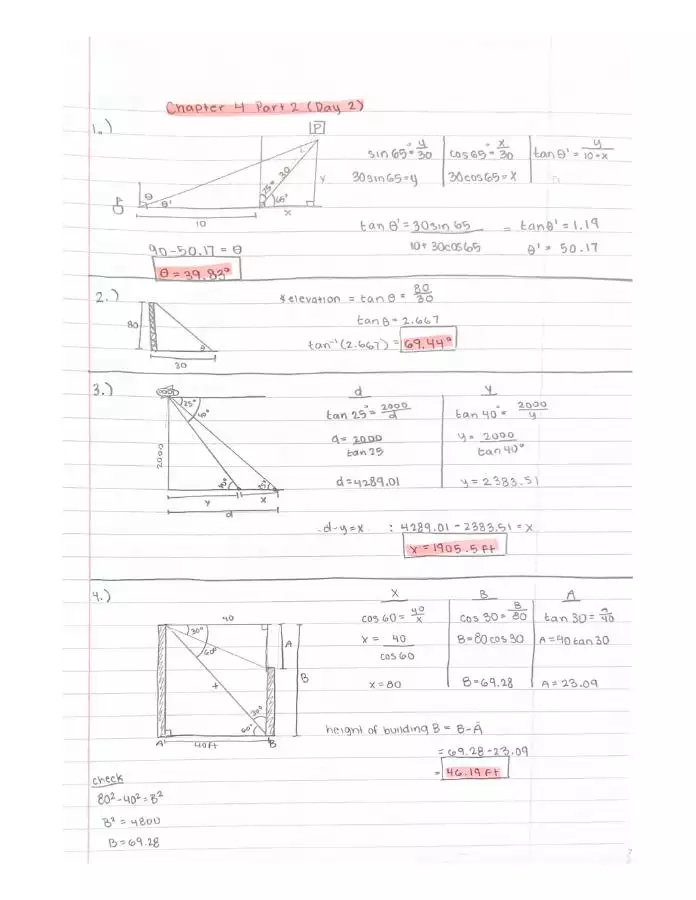 Chapter 4 Part 2 (Day 2)
1.)
P
θ
θ'
25°
30
65°
y
10
x
sin 65° = y/30
30 sin 65 = y
cos 65° = x/30
30 cos 65 = x
tan θ' = y/10+x
tan θ' = 30 sin 65 / 10 + 30 cos 65 = tan θ' = 1.19
θ' = 50.17
90 - 50.17 = θ
θ = 39.83°
2.)
80
θ
30
∡ elevation = tan θ = 80/30
tan θ = 2.667
tan⁻¹(2.667) = 69.44°
3.)
25°
40°
2000
40°
25°
y
x
d
d
tan 25° = 2000/d
d = 2000/tan 25
d = 4289.01
y
tan 40° = 2000/y
y = 2000/tan 40°
y = 2383.51
d - y = x : 4289.01 - 2383.51 = x
x = 1905.5 ft
4.)
40
30°
60°
A
B
x
30°
60°
A
40 ft
B
X
cos 60 = 40/x
x = 40/cos 60
x = 80
B
cos 30 = B/80
B = 80 cos 30
B = 69.28
A
tan 30 = a/40
A = 40 tan 30
A = 23.09
height of building B = B - A
= 69.28 - 23.09
= 46.19 ft
check
80² - 40² = B²
B² = 4800
B = 69.28